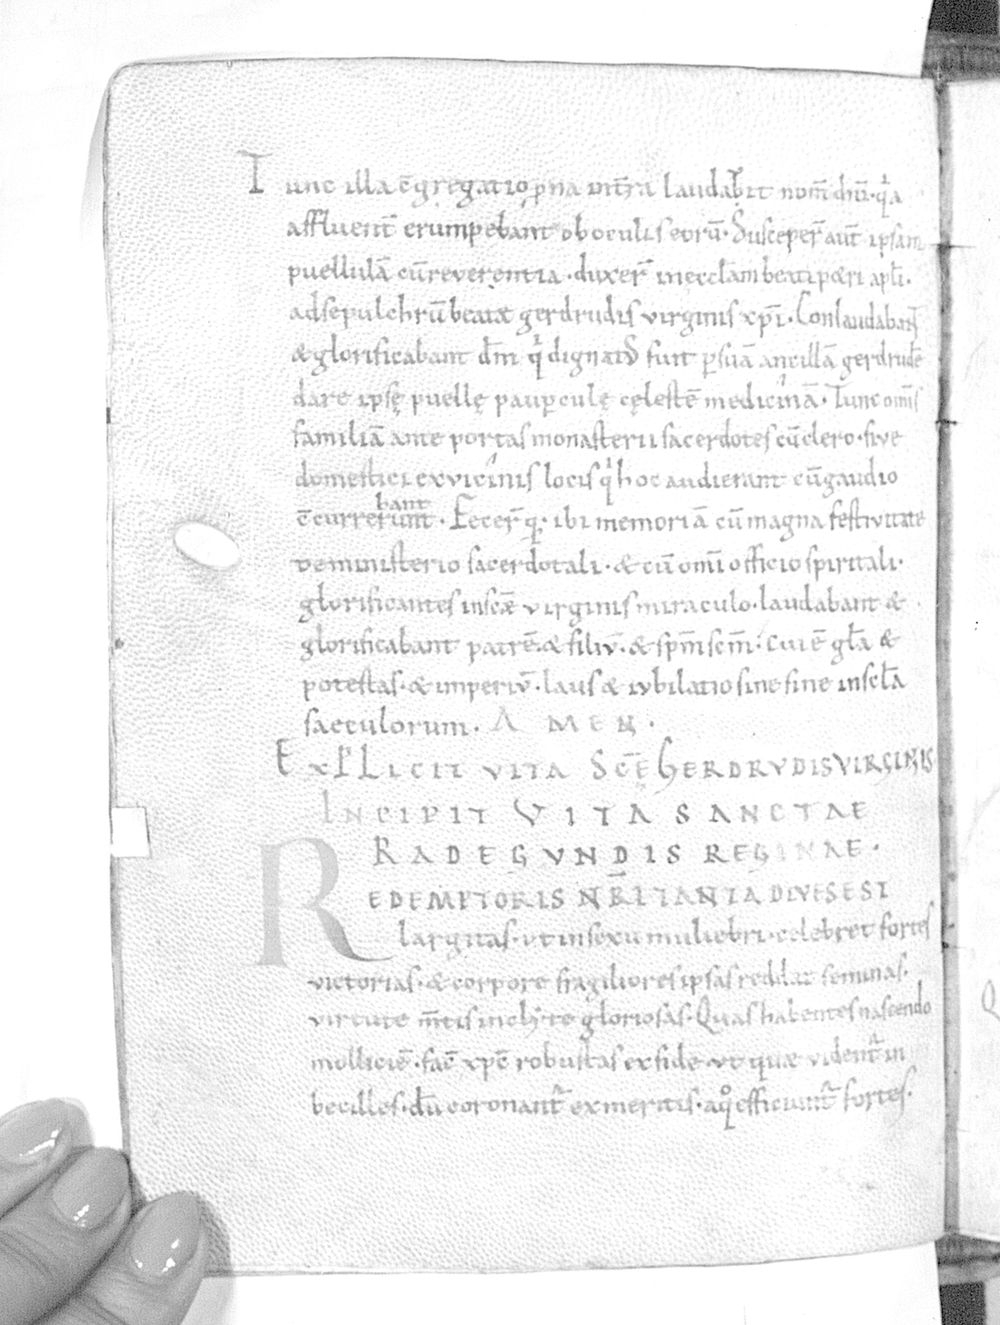 Tunc illa c̄gregatio p̱na int̄ra laudab̄it nom̄ dn̄i · qͥa
affluent̄ erumpebant ob oculis eorū · Susceper̄ aūt ipsam
puellulā cū reverentia · duxer̄ in ecclam̄ beati pætri apl̄i ·
ad sepulchrū beatæ gerdrudis virginis xp̄i · Conlaudabant
& glorificabant dn̄m qͥ dignatꝰ fuit p̱ suā ancillā gerdrudē
dare ipsę puellę paup̱culę cęlestē medicinā · Tunc omīs
familiā ante portas monasterii sacerdotes cū clero · sive
domestici ex vicinis locis qͥ hoc audierant cū gaudio
c̄currerunt bant · Fecer̄q· ibi memoriā cū magna festivitate
ve ministerio sacerdotali · & cū omī officio spiritali ·
glorificantes in scǣ virginis miraculo · laudabant &
glorificabant patrē · & filiū · & sp̄m sc̄m · cui ē gl̄a &
potestas · & imperiū · laus & iubilatio sine fine in scl̄a
saeculorum · AMEN ·
EXPLICIT VITA SC̄Ę GERDRUDIS VIRGINIS
INCIPIT VITA SANCTAE
RADEGUNDIS REGINAE ·
REDEMPTORIS NR̄I TANTA DIVES EST
largitas · ut in sexu muliebri · celebret fortes
victorias · & corpore fragiliores ipsas reddat feminas ·
virtute m̄tis inclyte gloriosas · Quas habentes nascendo
molliciē · facē xp̄c robustas ex fide · ut quæ videnr̄ in
becilles · dū coronant̄ ex meritis · a qͦ efficiunt̄ fortes ·